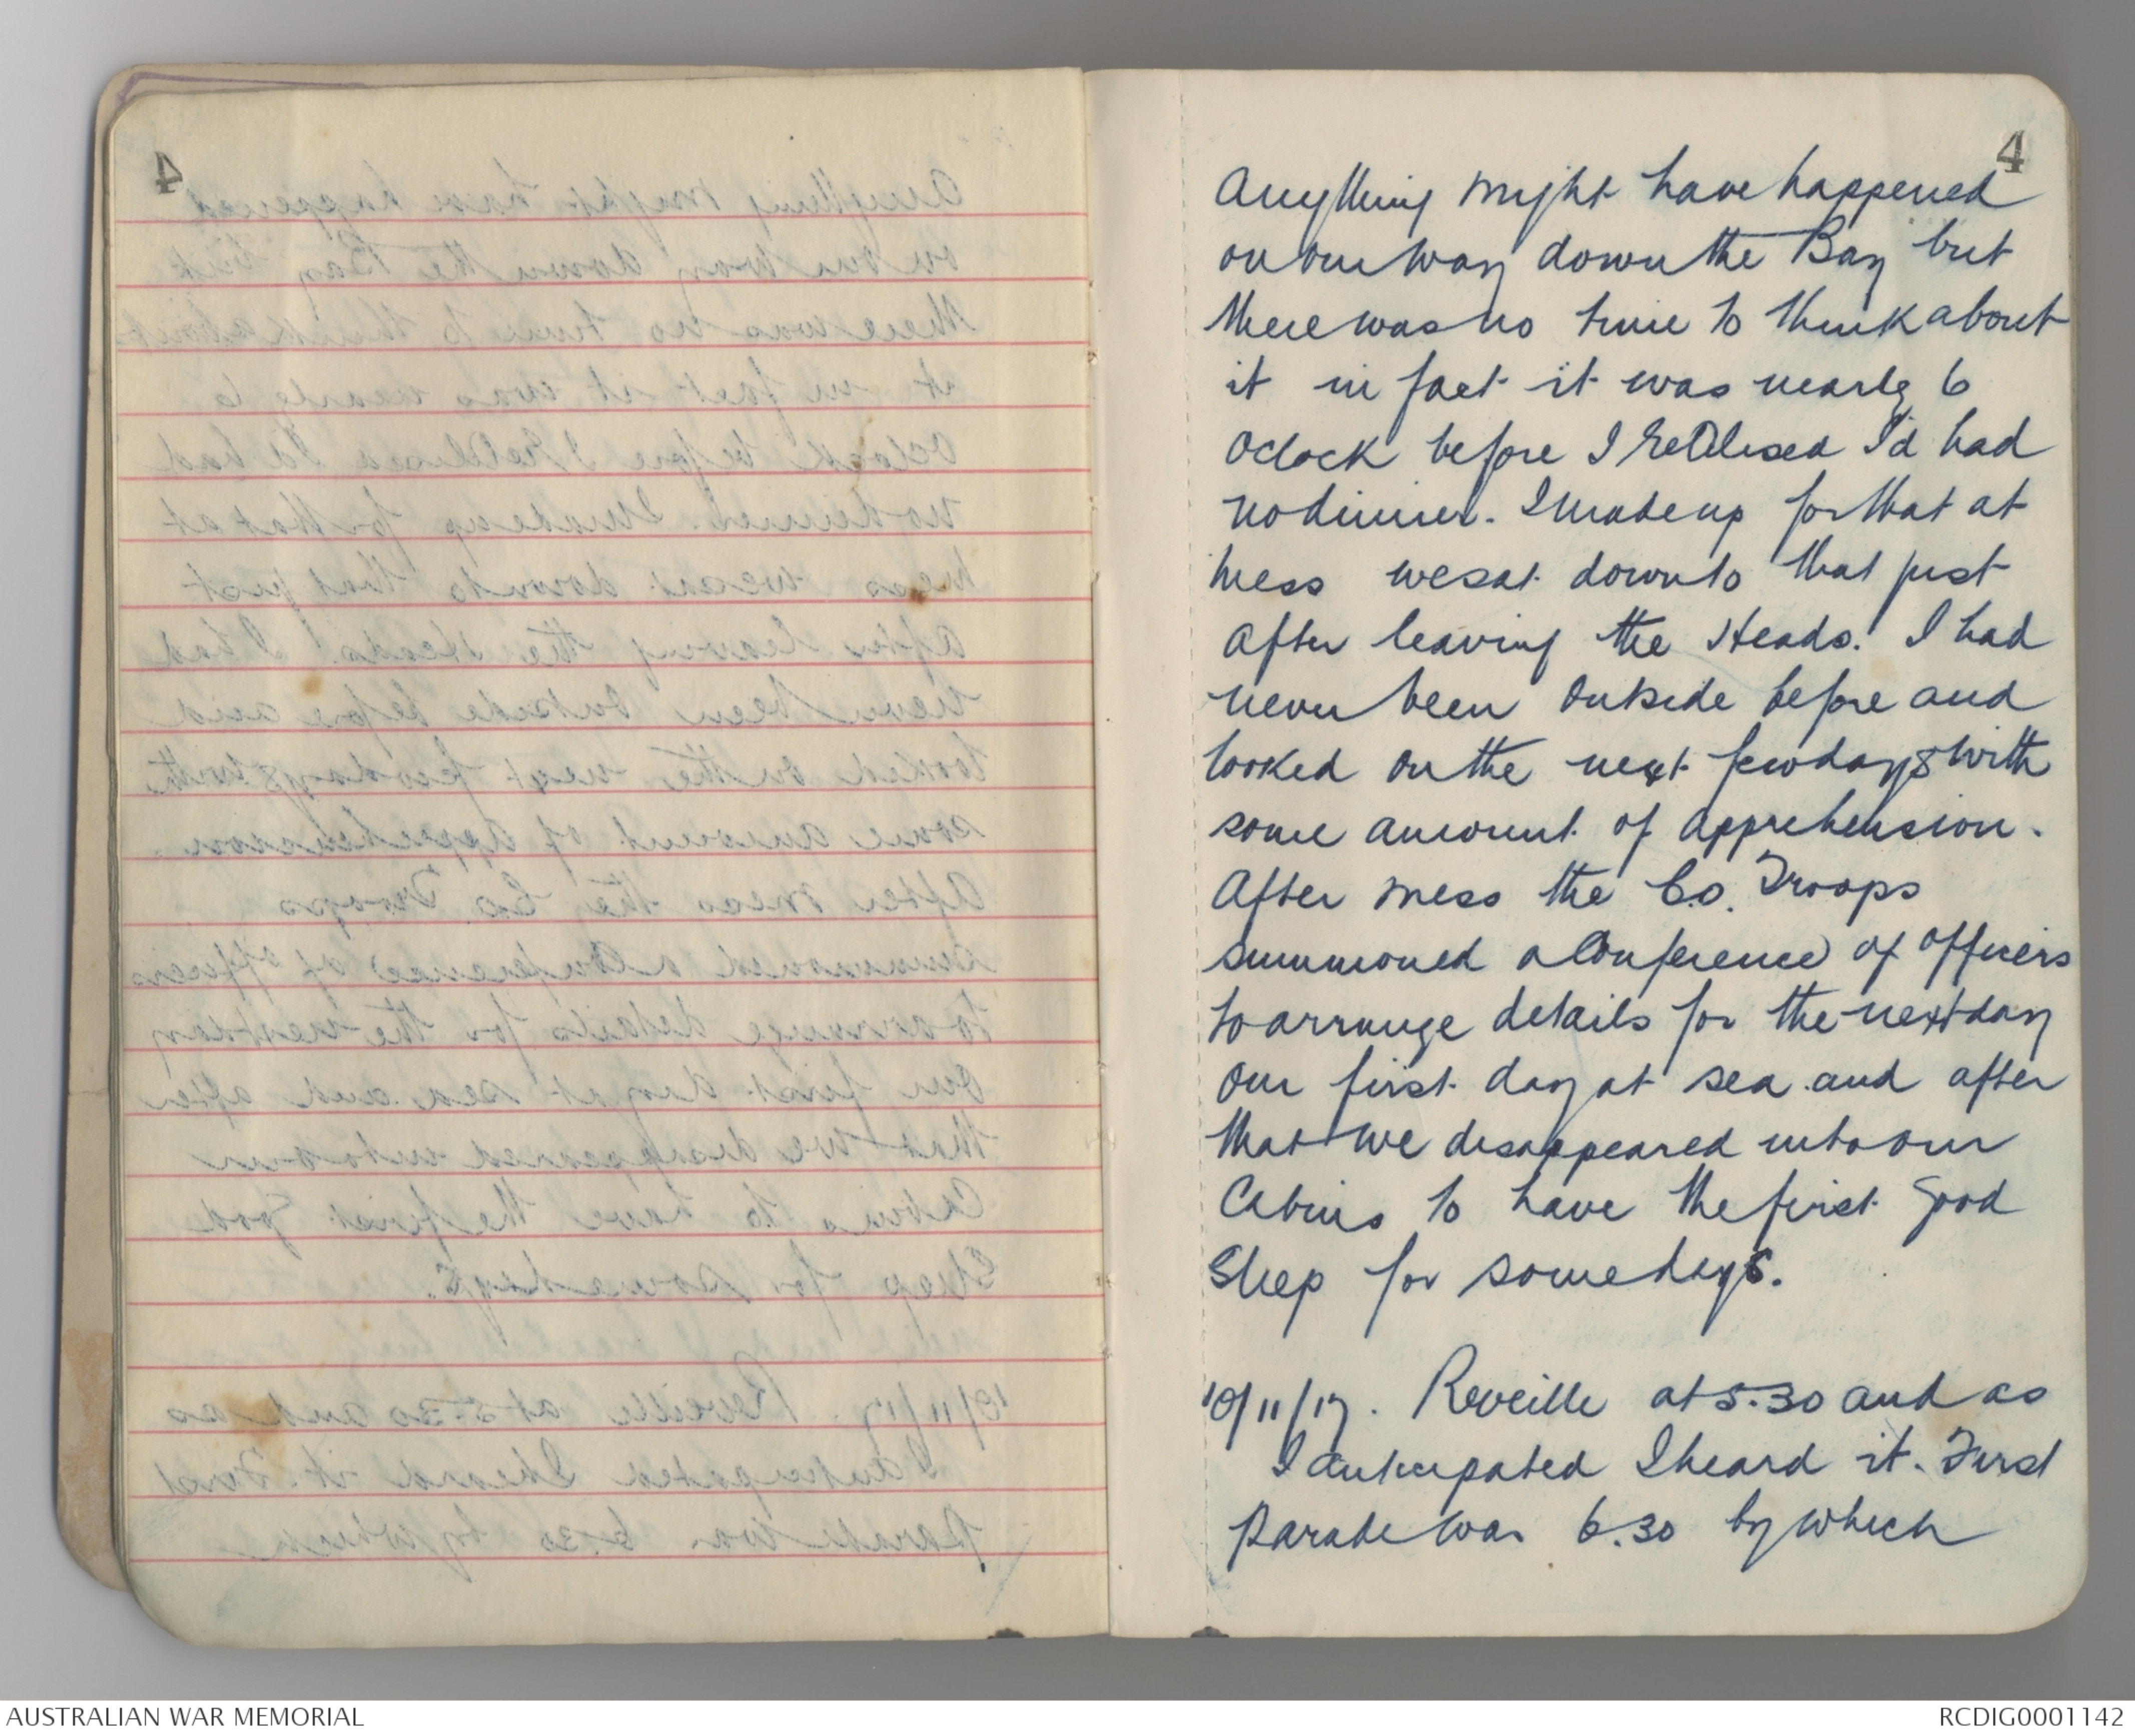 4
Anything might have happened
on our way down the Bay but
there was no time to think about
it in fact it was nearly 6
Oclock before I realised I'd had
no dinner. I made up for that at
mess we sat down to that just
after leaving the Heads. I had
never been outside before and
looked on the next few days with
some amount of apprehension.
After mess the C.O. Troops
summoned a Conference of officers
to arrange details for the next day
our first day at sea and after
that we disappeared into our
Cabins to have the first good
Sleep for some days.
10/11/17. Reveille at 5.30 and as
I anticipated I heard it. First
Parade was 6.30 by which
AUSTRALIAN WAR MEMORIAL
RCDIG0001142